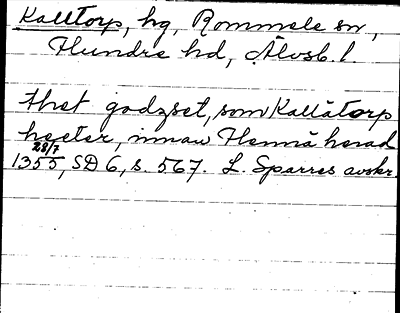 Kalltorp, hg, Rommele sn,
Flundre hd, Älvsb. l.
thet godzset, som Kallätorp
heeter, innan Flennä herad
28/7
1355, SD 6, s. 567. L. Sparres avskr.